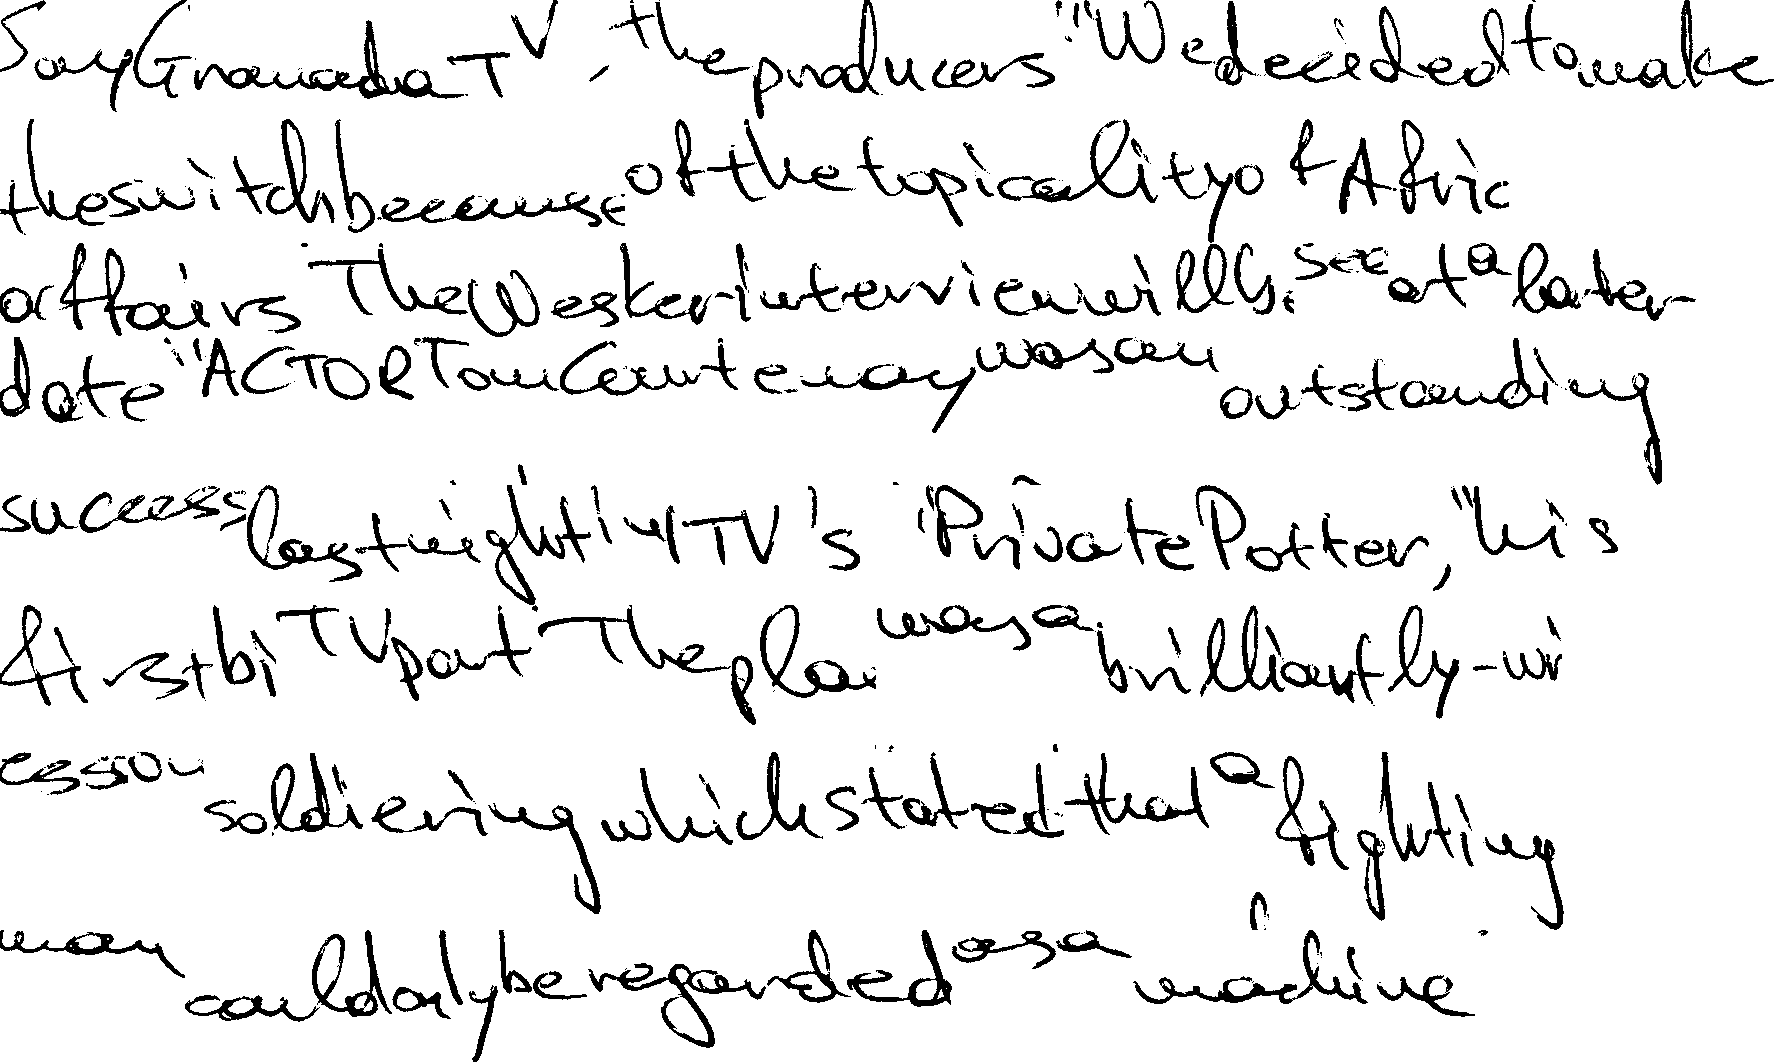 Say Granada TV, the producers "We decided to make
the switch because of the topicality of Afric
affairs The Wesker interview will be see at a later
date" ACTOR Tom Courtenay was an outstanding
success last night in ITV's "Private Potter," his
first bi TV part The pla was a brilliantly-wri
esson soldiering which stated that a fighting
man could only be regarded as a machine